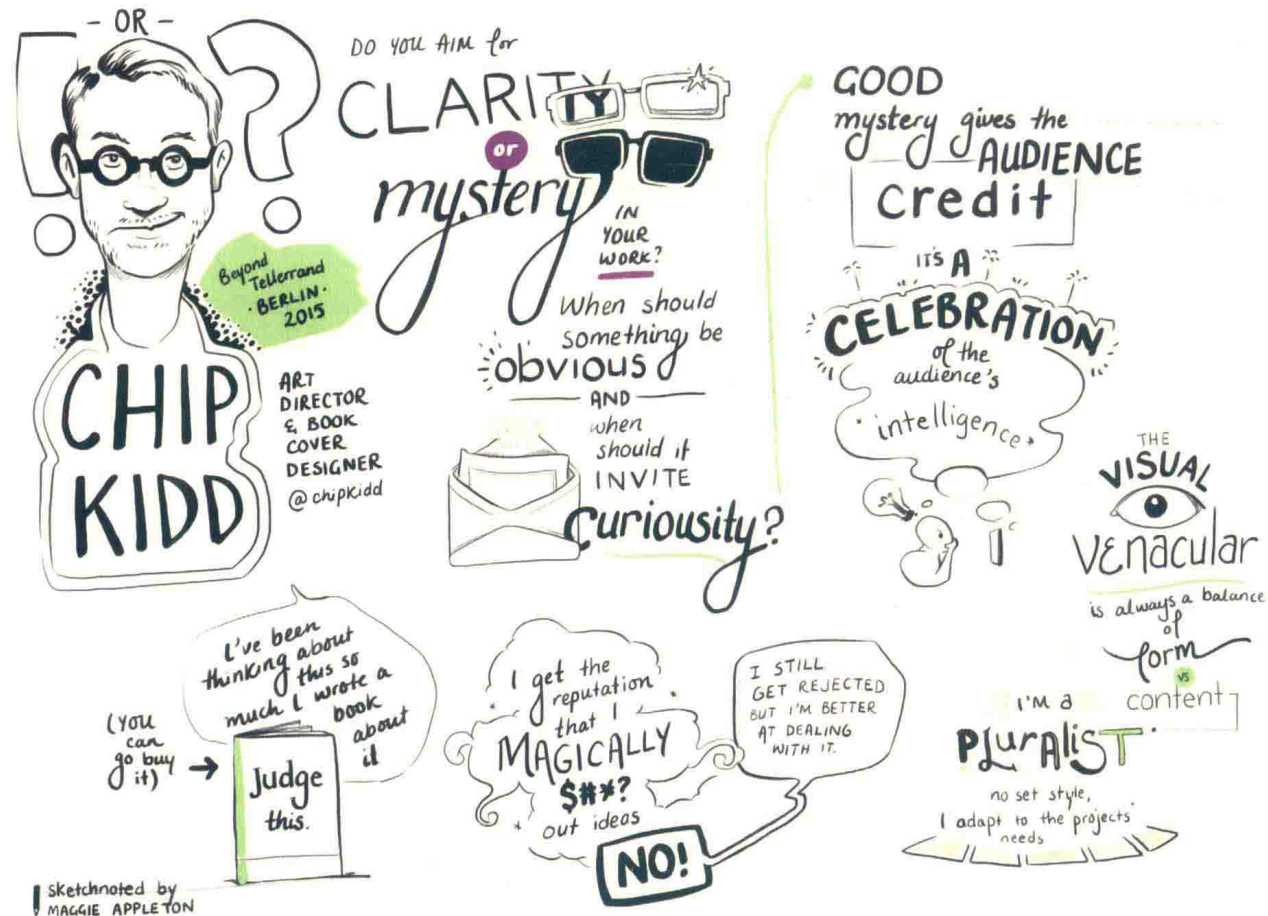 ! - OR - ?
CHIP
KIDD
Beyond
Tellerrand
· BERLIN ·
2015
ART
DIRECTOR
& BOOK
COVER
DESIGNER
@chipkidd
DO YOU AIM for
CLARITY
or
mystery
IN
YOUR
WORK?
When should
something be
obvious
AND
when
should it
INVITE
curiousity?
GOOD
mystery gives the
AUDIENCE
credit
IT'S A
CELEBRATION
of the
audience's
intelligence
THE
VISUAL
VENACULAR
is always a balance
of
form
vs
content
I'M A
PLURALIST
no set style,
I adapt to the projects'
needs
I've been
thinking about
this so
much I wrote a
book
about
it
(you
can
go buy
it)
Judge
this.
I get the
reputation
that I
MAGICALLY
$#*?
out ideas
NO!
I STILL
GET REJECTED
BUT I'M BETTER
AT DEALING
WITH IT.
sketchnoted by
MAGGIE APPLETON